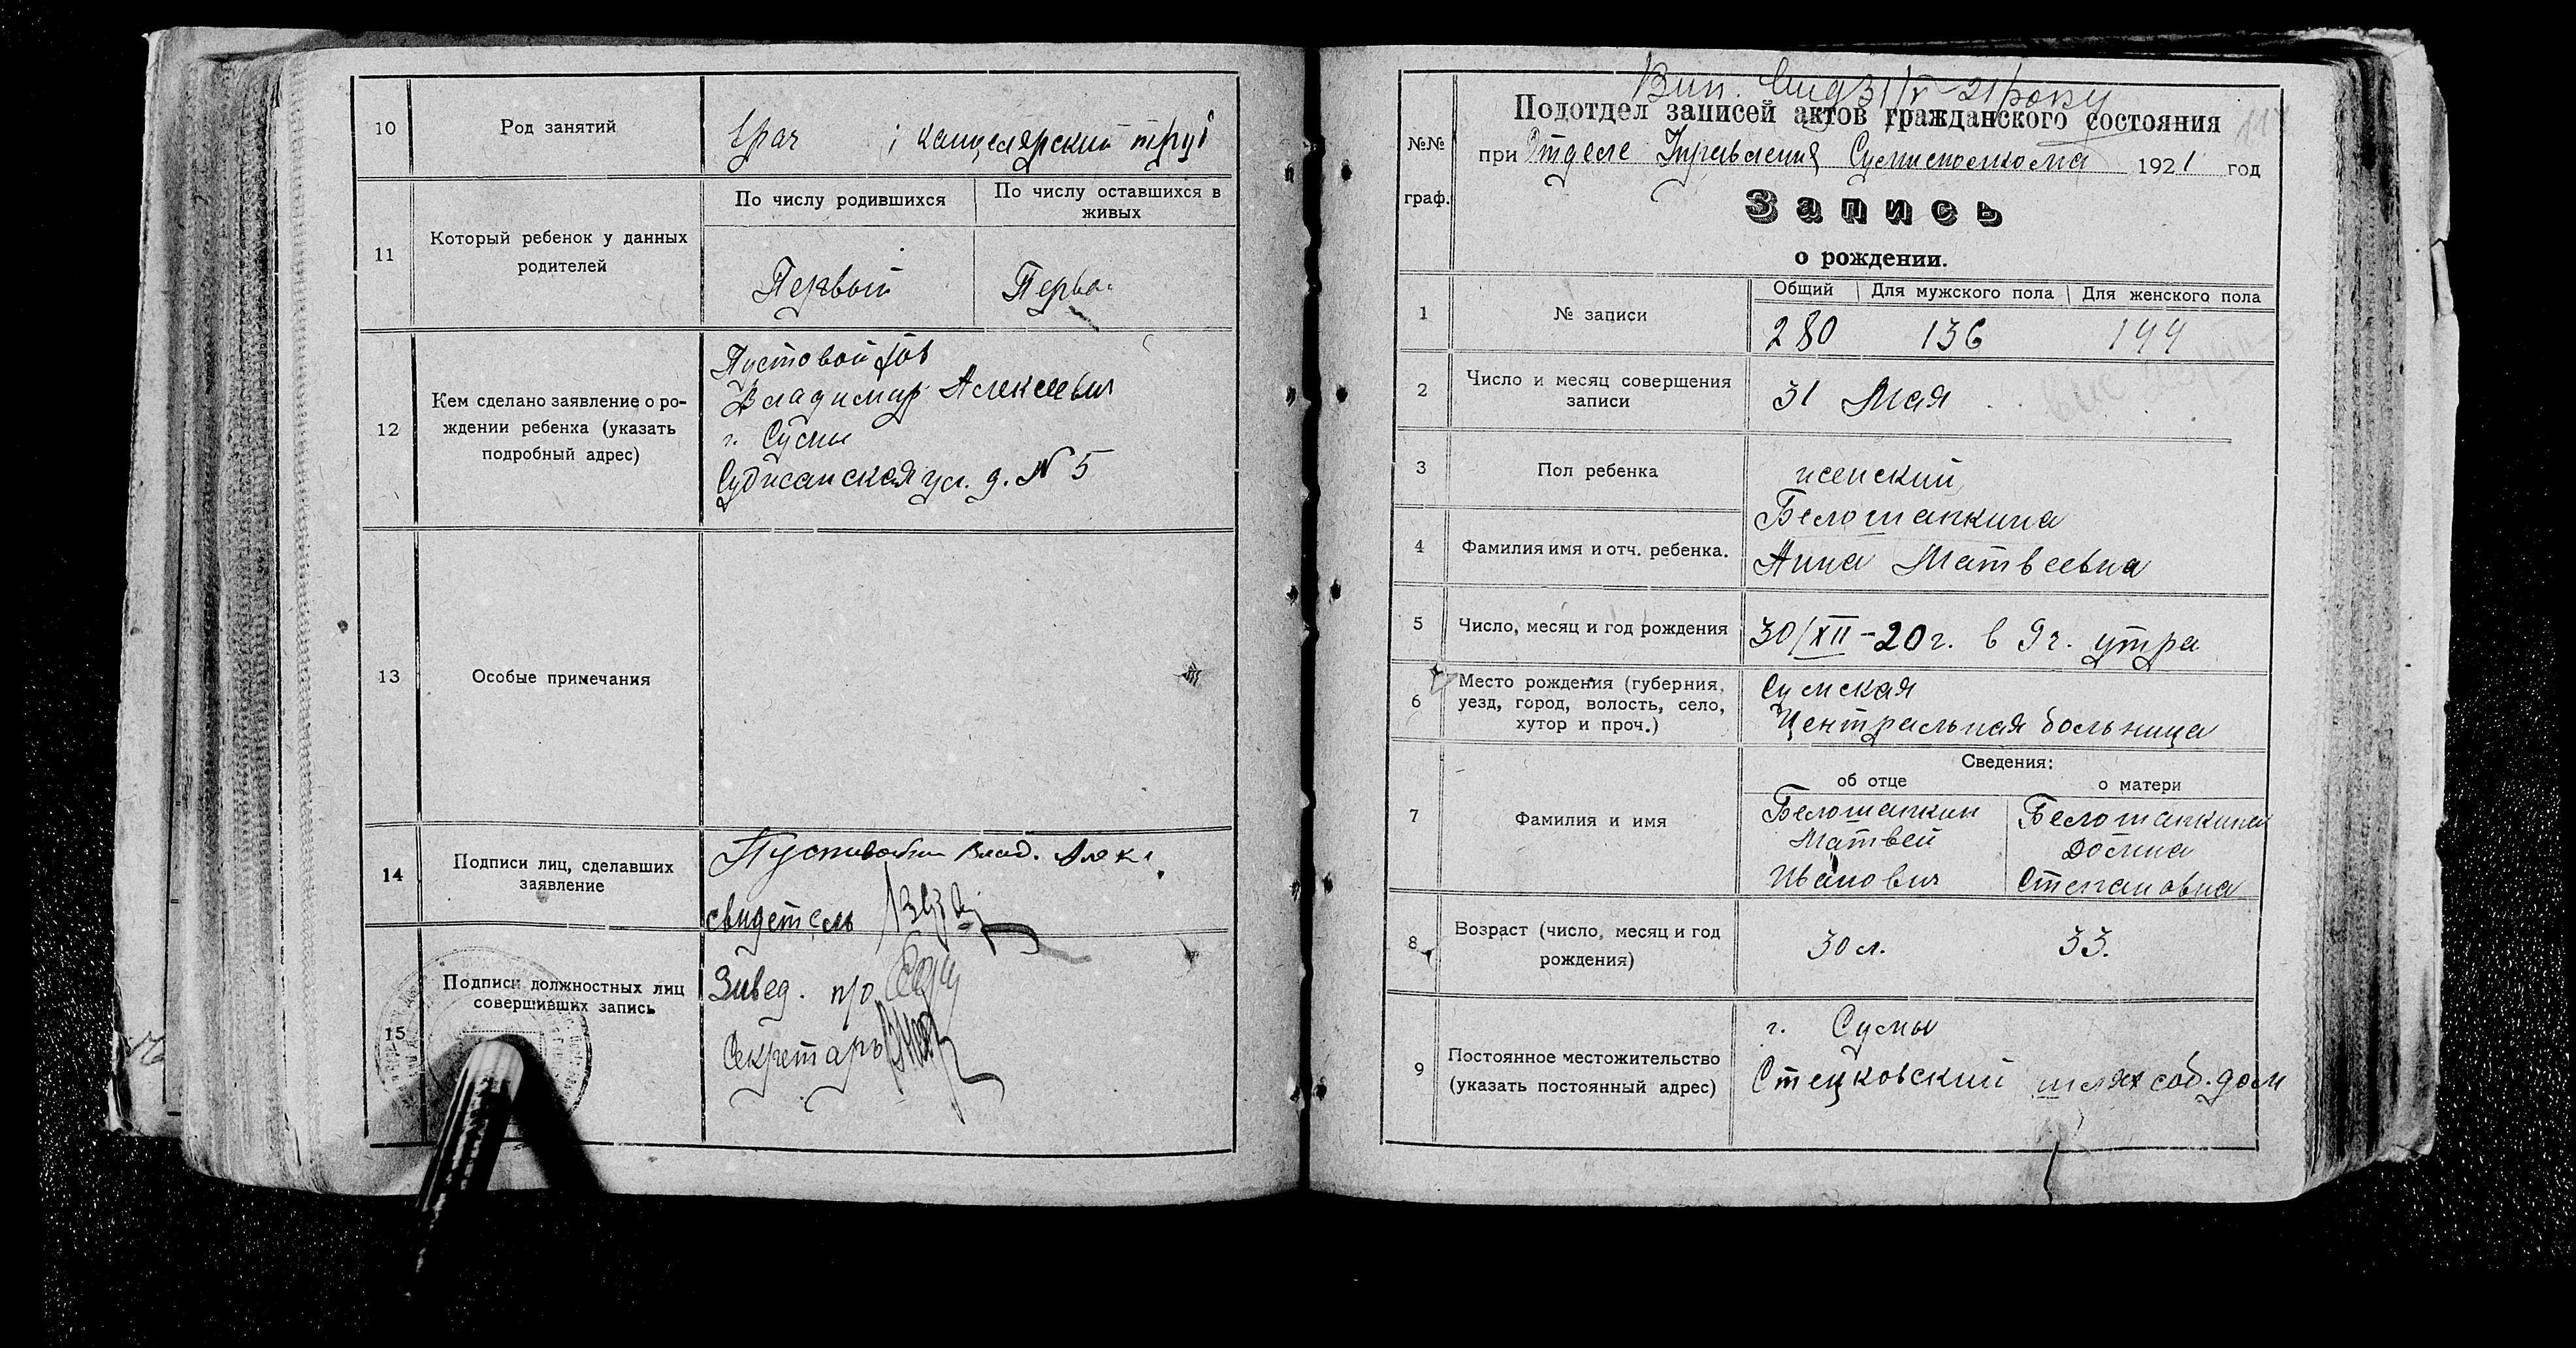 10
Род занятий
Врач ; канцелярский труд
11
Который ребенок у данных
родителей
По числу родившихся
По числу оставшихся в
живых
Первый
Первы
12
Кем сделано заявление о ро-
ждении ребенка (указать
подробный адрес)
Пустовойтов
Владимир Алексеевич
г. Сумы
Суджанская ул. д. № 5
13
Особые примечания
14
Подписи лиц, сделавших
заявление
Влад. Алек
свидетель
15
Подписи должностных лиц
совершивших запись
Завед. п/о
Секретарь
№№
граф.
Вип. 31/V 21 року
Подотдел записей актов гражданского состояния
при Отделе Управления Сумисполкома 1921 год
Запись
о рождении.
1
№ записи
Общий
Для мужского пола
Для женского пола
280 136 144
2
Число и месяц совершения
записи
31 Мая
3
Пол ребенка
женский
4
Фамилия имя и отч. ребенка.
Белошапкина
Анна Матвеевна
5
Число, месяц и год рождения
30/XII-20г. в 9ч. утра
6
Место рождения (губерния,
уезд, город, волость, село,
хутор и проч.)
Сумская
Центральная больница
7
Фамилия и имя
Сведения:
об отце
о матери
Белошапкин
Матвей
Иванович
Белошапкина
Домна
Степановна
8
Возраст (число, месяц и год
рождения)
30 л. 33.
9
Постоянное местожительство
(указать постоянный адрес)
г. Сумы
Стецковский шлях соб. дом